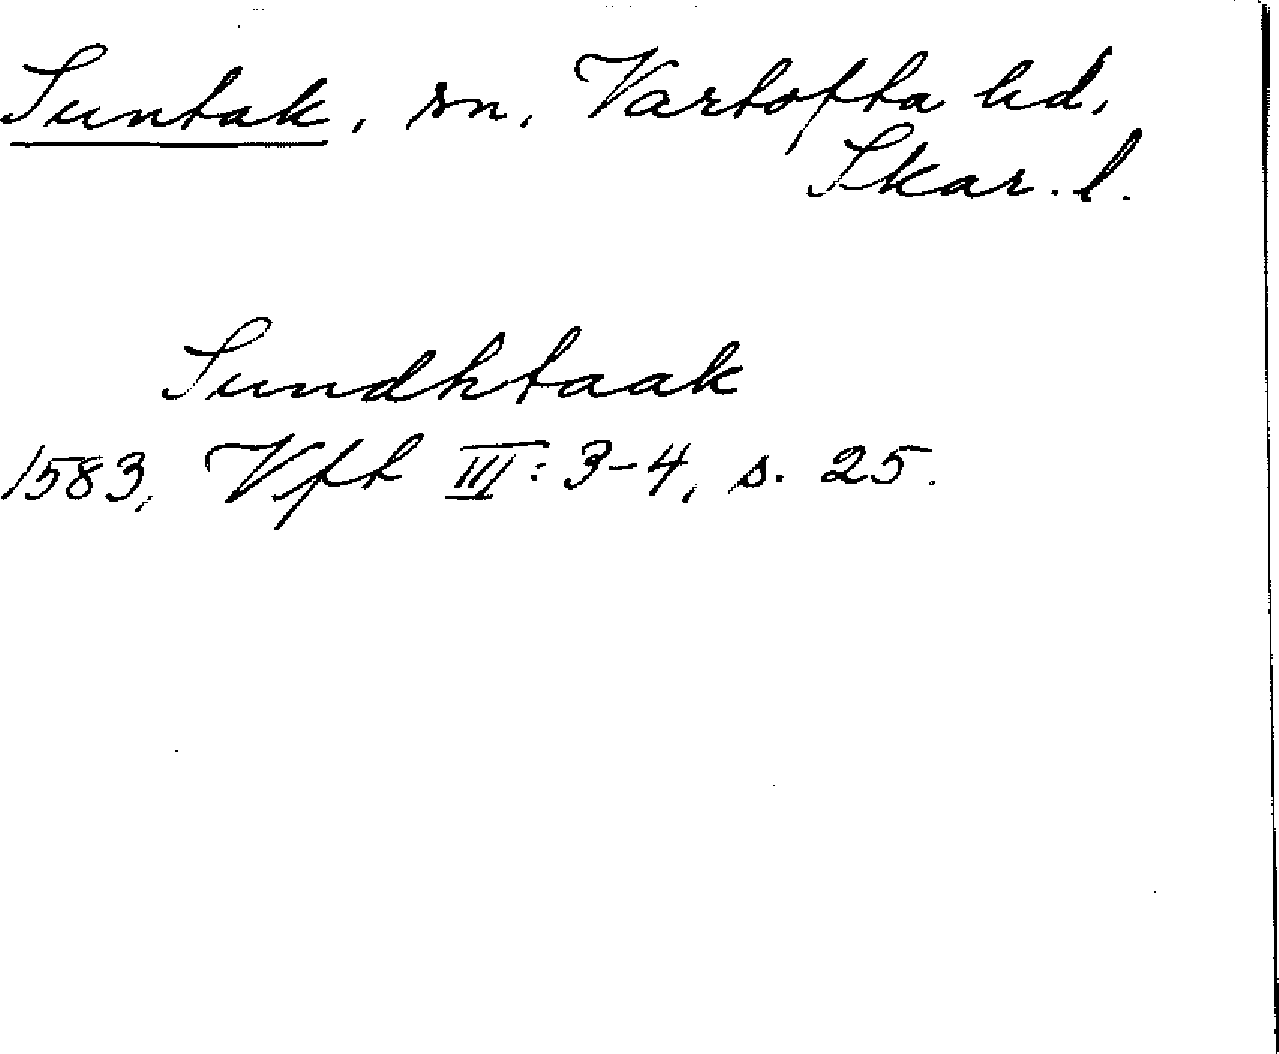 Suntak, sn, Vartofta hd,
Skar. l.
Sundhtaak
1583, Vft III: 3-4, s. 25.